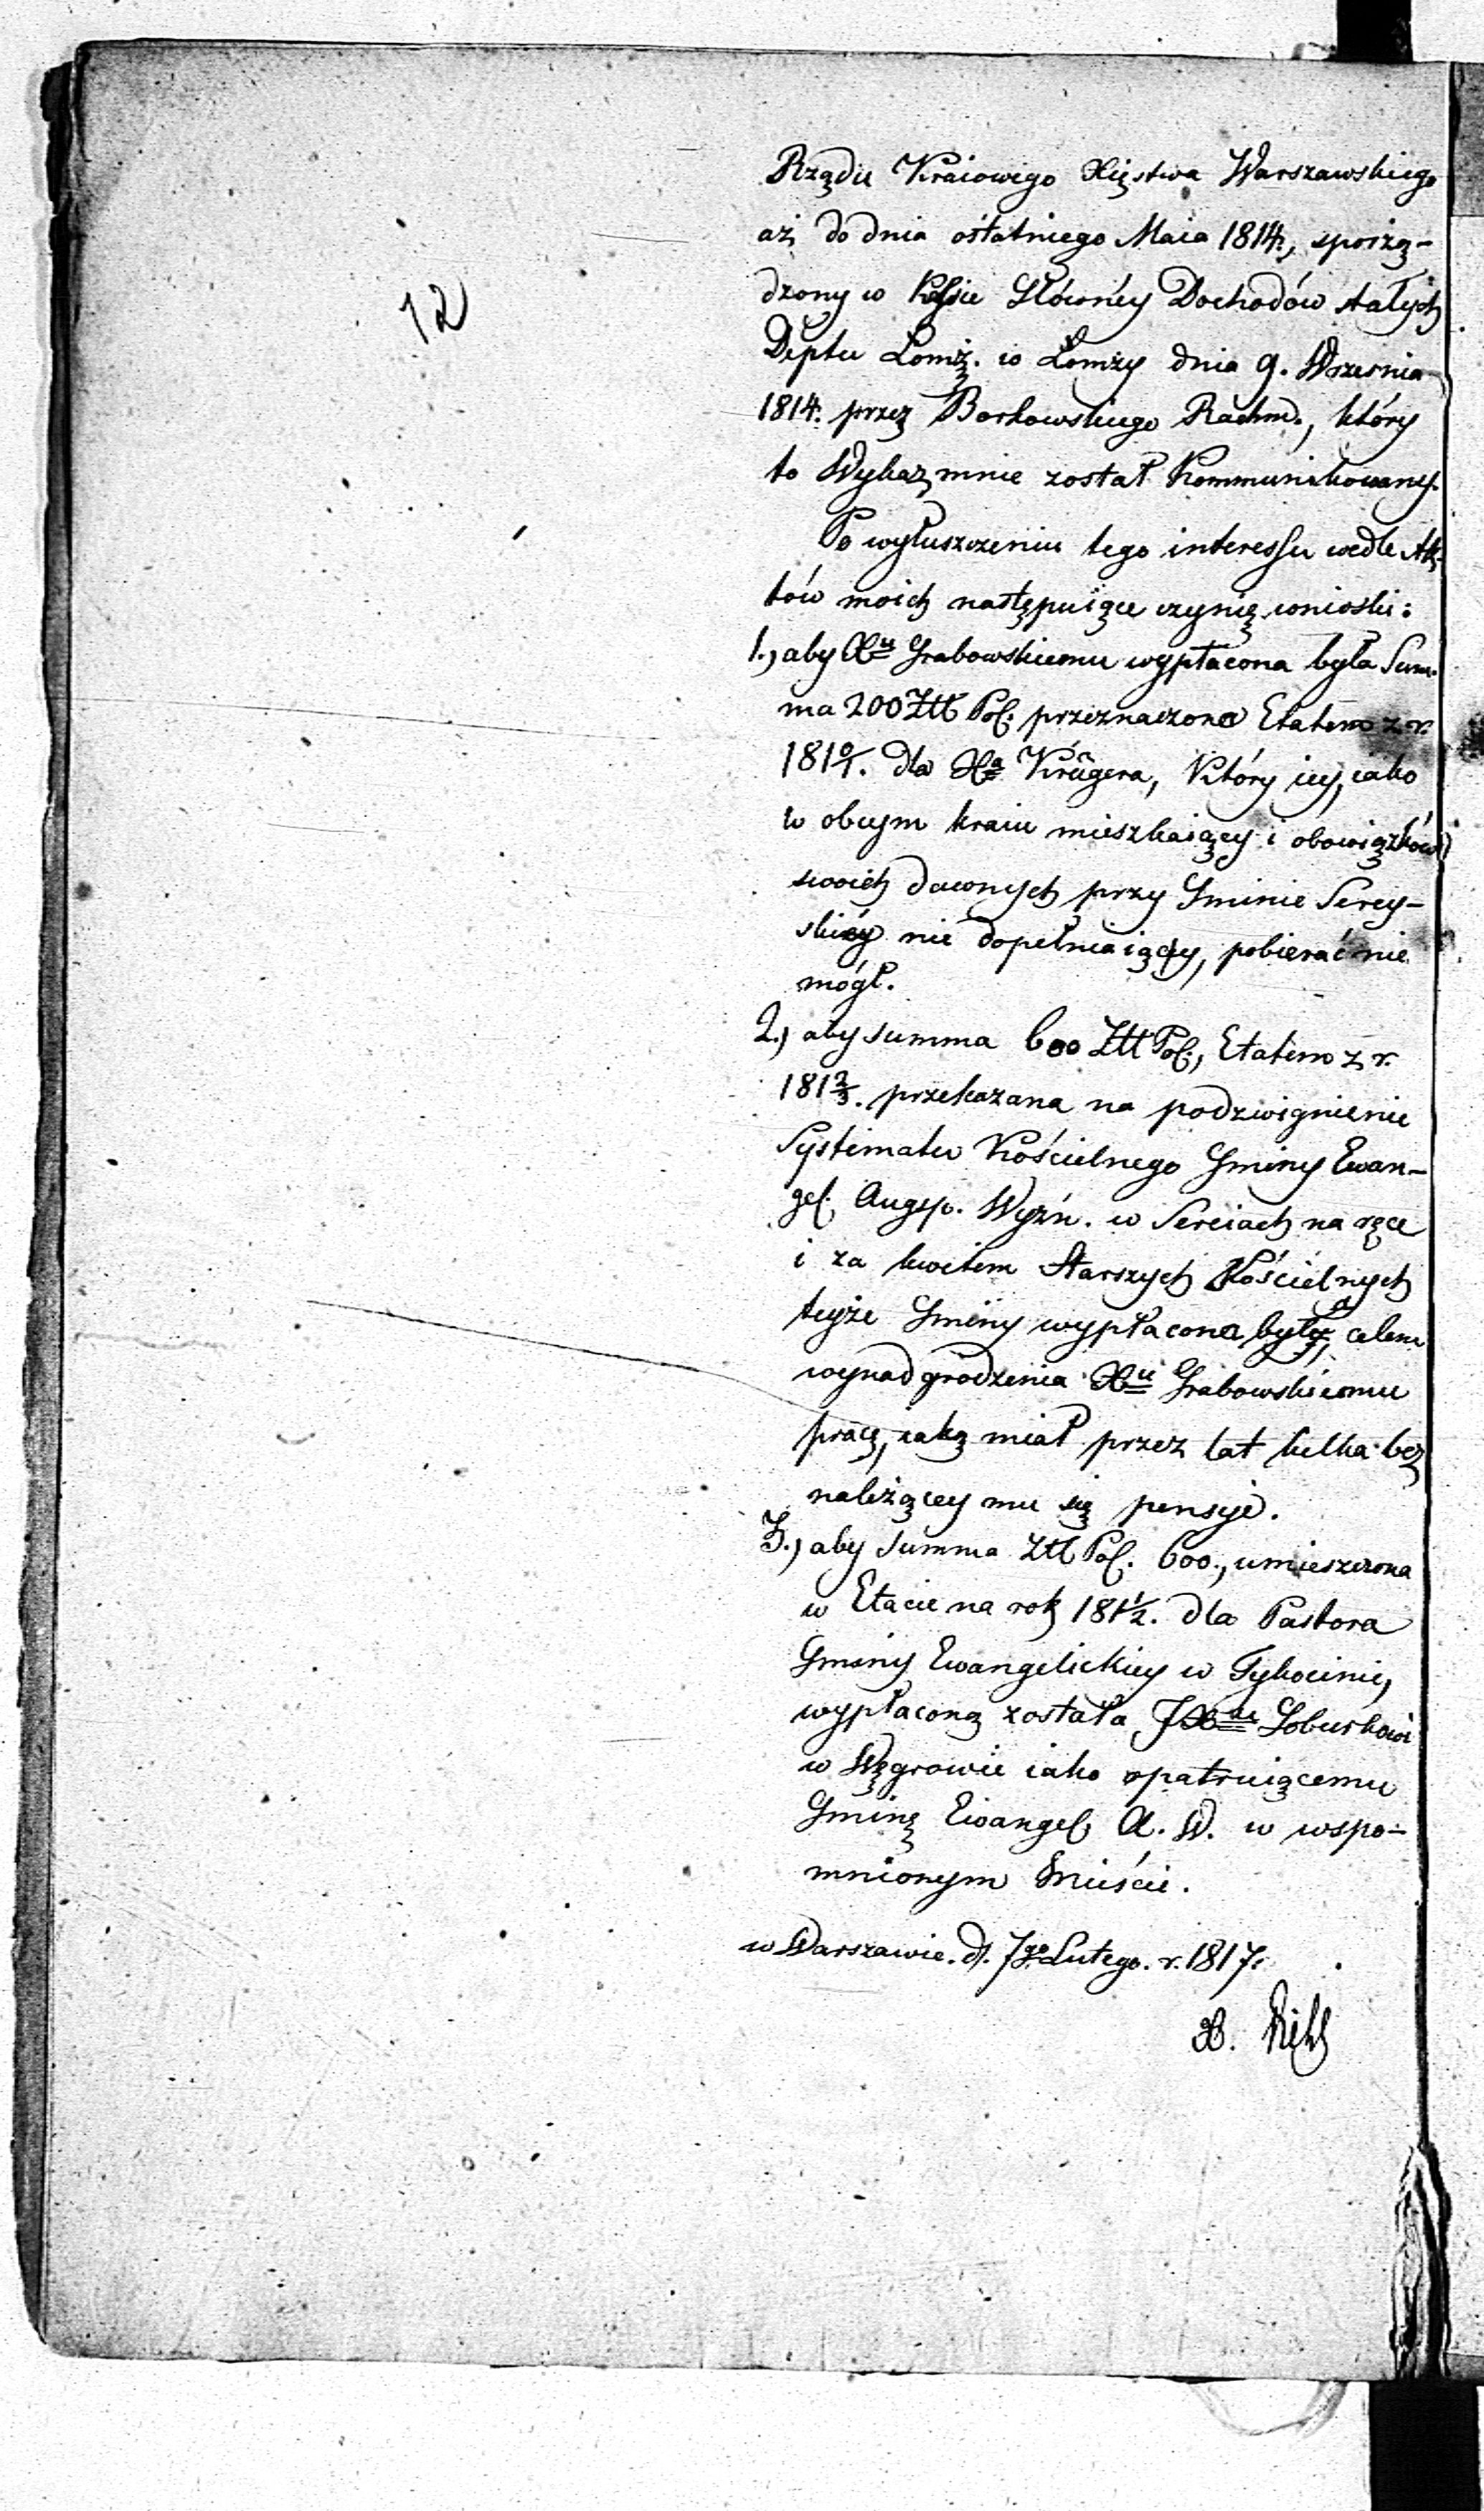 12
Rządu Kraiowego Xięstwa Warszawskiego
aż do dnia ostatniego Maia 1814., sporzą-
dzony w Kassie Główney Dochodów stałych
Deptu Łomż. w Łomży dnia 9. Wrzesnia
1814. przez Borkowskiego Rachm., który
to Wykaz mnie został Kommunikowany.
Po wyłuszczeniu tego interessu wedle Ak-
tów moich następuiące czynię wnioski:
1., aby Xu Grabowskiemu wypłacona była Sum-
ma 200 Złł Pol. przeznaczona Etatem z r.
181 0/1. dla Xa Krügera, Który iey, iako
w obcym kraiu mieszkaiący i obowiązków
swoich dawnych przy Gminie Serey-
skiéy nie dopełniaiący, pobierać nie
mógł.
2., aby summa 600 Złł Pol., Etatem z r.
181 2/3. przekazana na podzwignienie
Systematu Kościelnego Gminy Ewan-
gel. Augsp. Wyzń. w Sereiach na ręce
i za kwitem Starszych Kościelnych
teyże Gminy wypłacona była, celem
wynadgrodzenia Xu Grabowskiemu
pracę, iaką miał przez lat kilka bez
należącey mu się pensyi.
3., aby summa Złł Pol. 600., umieszczona
w Etacie na rok 181 1/2. dla Pastora
Gminy Ewangelickiey w Tykocinie,
wypłaconą została JXu
w Węgrowie iako opatruiącemu
Gminę Ewangel. A. W. w wspo-
mnionym Mieście.
w Warszawie. d. 7go Lutego. r. 1817.
X.